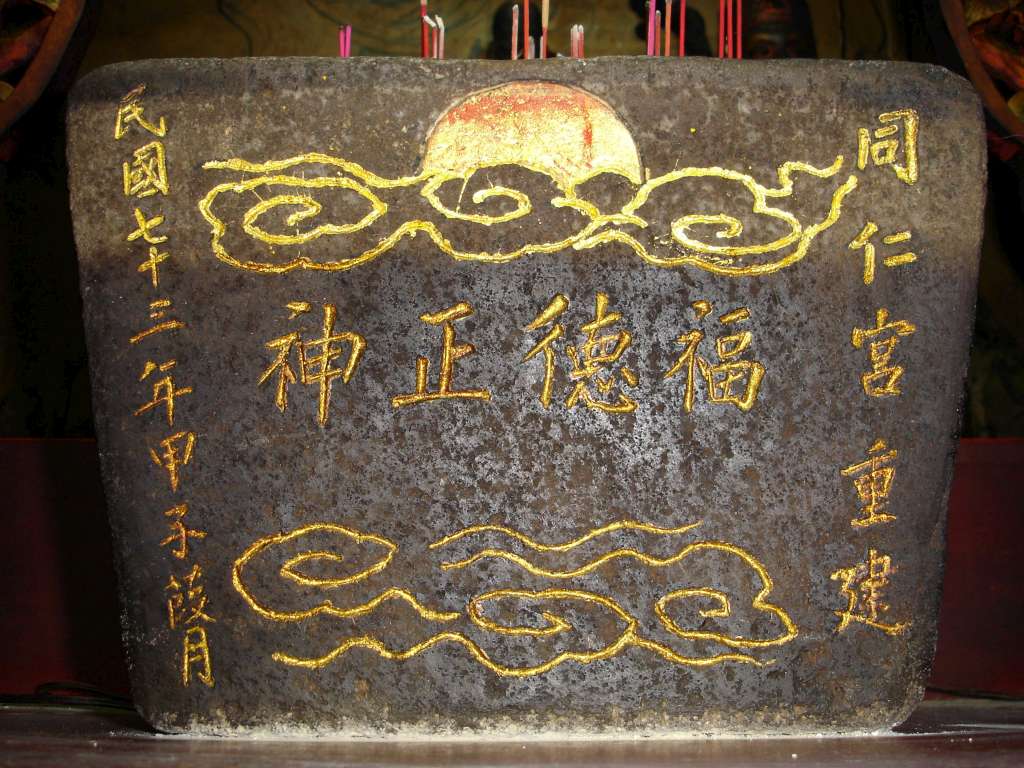 同仁宮重建
福德正神
民國七十三年甲子葭月